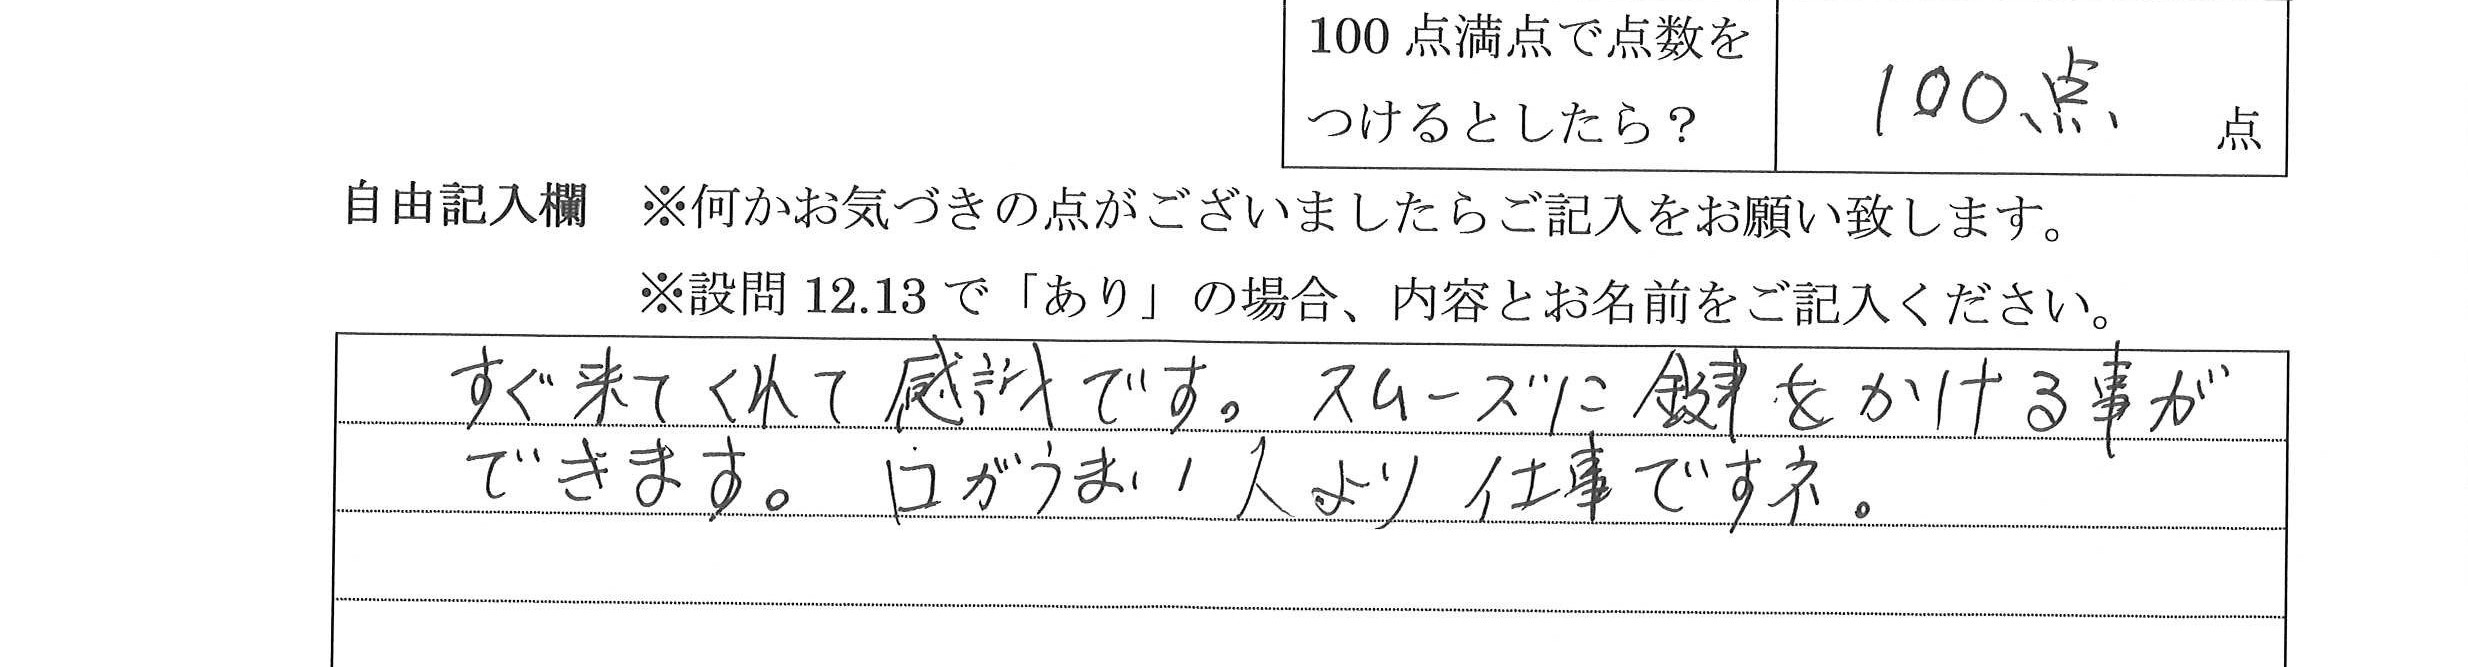 100 点満点で点数を
つけるとしたら？
100点 点
自由記入欄 ※何かお気づきの点がございましたらご記入をお願い致します。
※設問 12.13 で「あり」の場合、内容とお名前をご記入ください。
すぐ来てくれて感謝です。スムーズに鍵をかける事が
できます。口がうまい人より仕事ですネ。